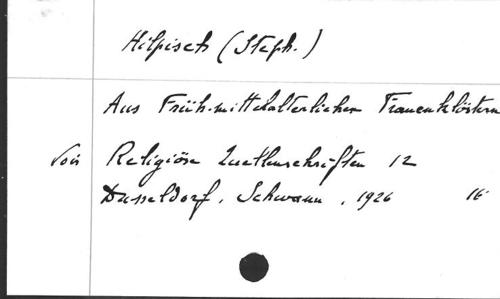 Hilpisch (Steph.)
Aus Früh-mittelalterlichen Frauenklöstern
Voir Religiöse Quellenschriften 12
Dusseldorf, Schwann, 1926 16